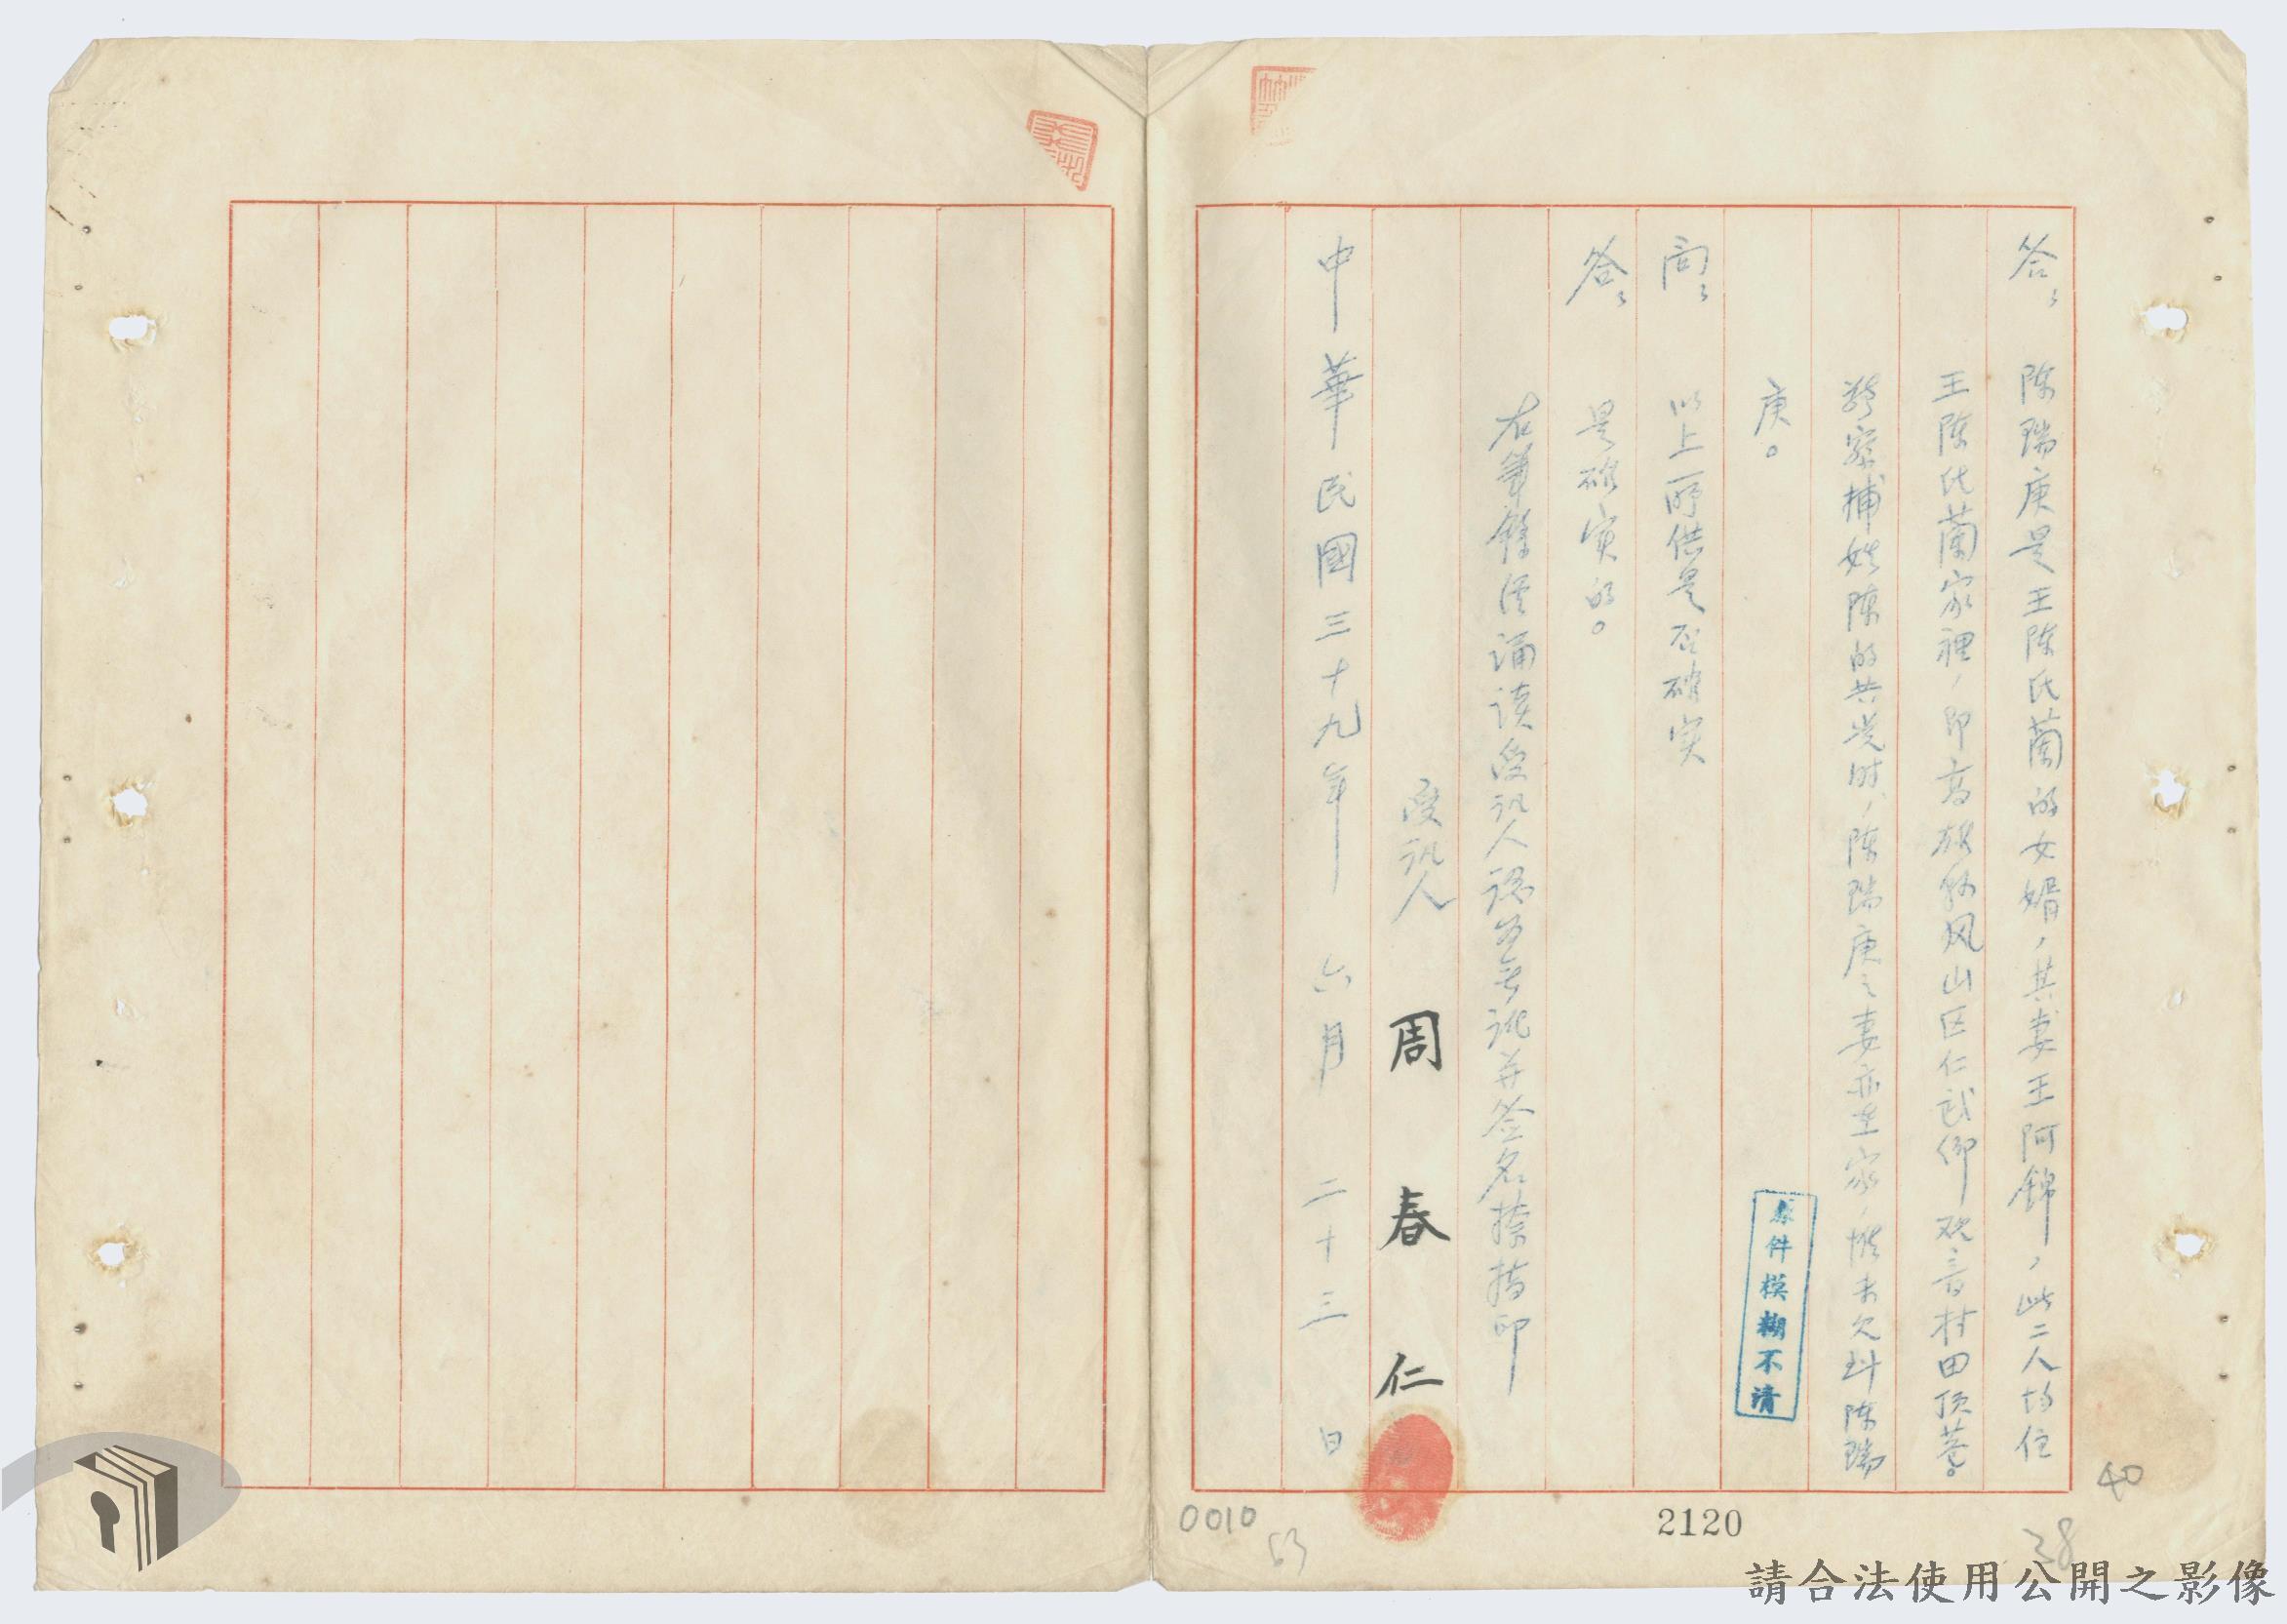 答： 陳瑞庚是王陳氏蘭的女婿，其妻王阿錦，此二人均住
王陳氏蘭家裡，即高雄縣凤山区仁武鄉观音村田頂巷。
警察捕姓陳的共党时，陳瑞庚之妻亦在家，惟未久到陳瑞
庚。
問： 以上所供是否確实
答： 是確实的。
右筆錄经誦读受訊人認为無訛并签名捺指印
受訊人 周春仁
中華民國三十九年 六月 二十三 日
原件模糊不清
0010
53
2120
38
40
請合法使用公開之影像